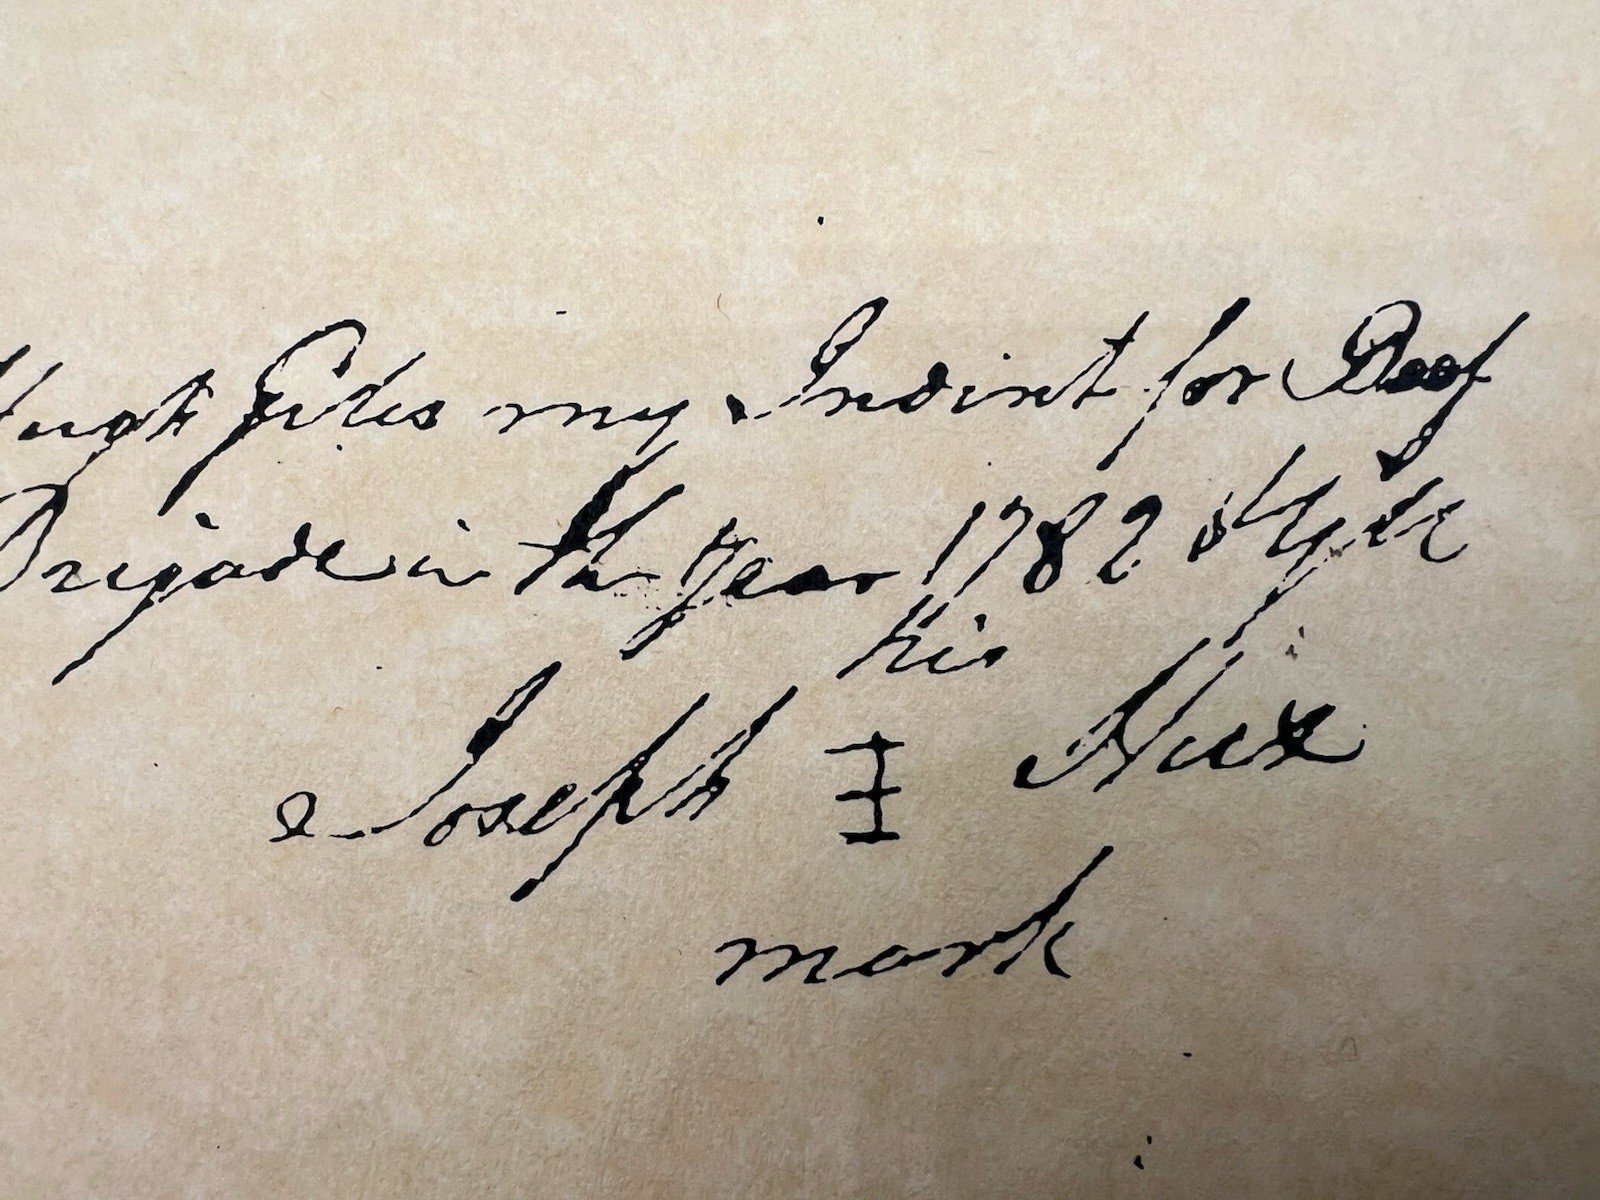 Hugh Giles my Indint for Beef
Brigade in the year 1782
his
Joseph I Hux
mark